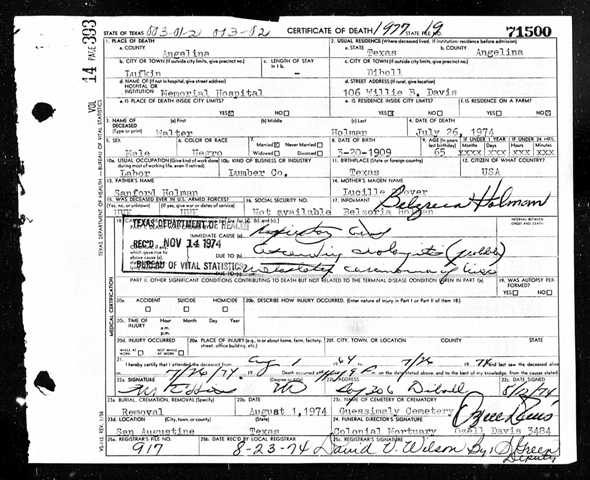 STATE OF TEXAS
CERTIFICATE OF DEATH
STATE FILE NO.
71500
VOL 14 PAGE 393
TEXAS DEPARTMENT OF HEALTH — BUREAU OF VITAL STATISTICS
1. PLACE OF DEATH
2. USUAL RESIDENCE (Where deceased lived. If institution: residence before admission)
a. COUNTY
Angelina
a. STATE
Texas
b. COUNTY
Angelina
b. CITY OR TOWN (If outside city limits, give precinct no.)
Lufkin
c. LENGTH OF STAY
c. CITY OR TOWN (If outside city limits, give precinct no.)
Diboll
d. NAME OF (If not in hospital, give street address)
HOSPITAL OR
INSTITUTION
Memorial Hospital
d. STREET ADDRESS (If rural, give location)
106 Willie B. Davis
e. IS PLACE OF DEATH INSIDE CITY LIMITS?
YES NO
e. IS RESIDENCE INSIDE CITY LIMITS?
YES NO
f. IS RESIDENCE ON A FARM?
YES NO
3. NAME OF DECEASED
(Type or print)
(a) First
Walter
(b) Middle
(c) Last
Holman
4. DATE OF DEATH
July 26, 1974
5. SEX
Male
6. COLOR OR RACE
Negro
7. Married Never Married
Widowed Divorced
8. DATE OF BIRTH
3-20-1909
9. AGE (In years last birthday)
65
IF UNDER 1 YEAR
IF UNDER 24 HRS.
xxxx xxx xxx xxx
10a. USUAL OCCUPATION (Give kind of work done during most of working life, even if retired)
Labor
10b. KIND OF BUSINESS OR INDUSTRY
Lumber Co.
11. BIRTHPLACE (State or foreign country)
Texas
12. CITIZEN OF WHAT COUNTRY?
USA
13. FATHER'S NAME
Sanford Holman
14. MOTHER'S MAIDEN NAME
Lucille
15. WAS DECEASED EVER IN U.S. ARMED FORCES?
(Yes, no, or unknown) (If yes, give war or dates of service)
unk unk
16. SOCIAL SECURITY NO.
Not available
17. INFORMANT
Holman
TEXAS DEPARTMENT OF HEALTH
REC'D. NOV 14 1974
BUREAU OF VITAL STATISTICS
IMMEDIATE CAUSE (a)
DUE TO (b)
DUE TO (c)
INTERVAL BETWEEN ONSET AND DEATH
MEDICAL CERTIFICATION
PART II. OTHER SIGNIFICANT CONDITIONS CONTRIBUTING TO DEATH BUT NOT RELATED TO THE TERMINAL DISEASE CONDITION GIVEN IN PART I (a)
19. WAS AUTOPSY PERFORMED?
YES NO
20a. ACCIDENT SUICIDE HOMICIDE
20b. DESCRIBE HOW INJURY OCCURRED. (Enter nature of injury in Part I or Part II of item 18)
20c. TIME OF INJURY
Hour Month Day Year
a.m.
p.m.
20d. INJURY OCCURRED
WHILE AT WORK NOT WHILE AT WORK
20e. PLACE OF INJURY (e.g., in or about home, farm, factory, street, office building, etc.)
20f. CITY, TOWN, OR LOCATION
COUNTY
STATE
21. I hereby certify that I attended the deceased from
7/26
7/26/74
22a. SIGNATURE
(Degree or title)
MD
22b. ADDRESS
Box 206 Diboll
22c. DATE SIGNED
23a. BURIAL, CREMATION, REMOVAL (Specify)
Removal
23b. DATE
August 1, 1974
23c. NAME OF CEMETERY OR CREMATORY
Cemetery
23d. LOCATION (City, town, or county)
San Augustine
(State)
Texas
24. FUNERAL DIRECTOR'S SIGNATURE
Colonial Mortuary
Ozell Davis 3484
25a. REGISTRAR'S FILE NO.
917
25b. DATE REC'D BY LOCAL REGISTRAR
8-23-74
25c. REGISTRAR'S SIGNATURE
David V. Wilson By: Green
Deputy